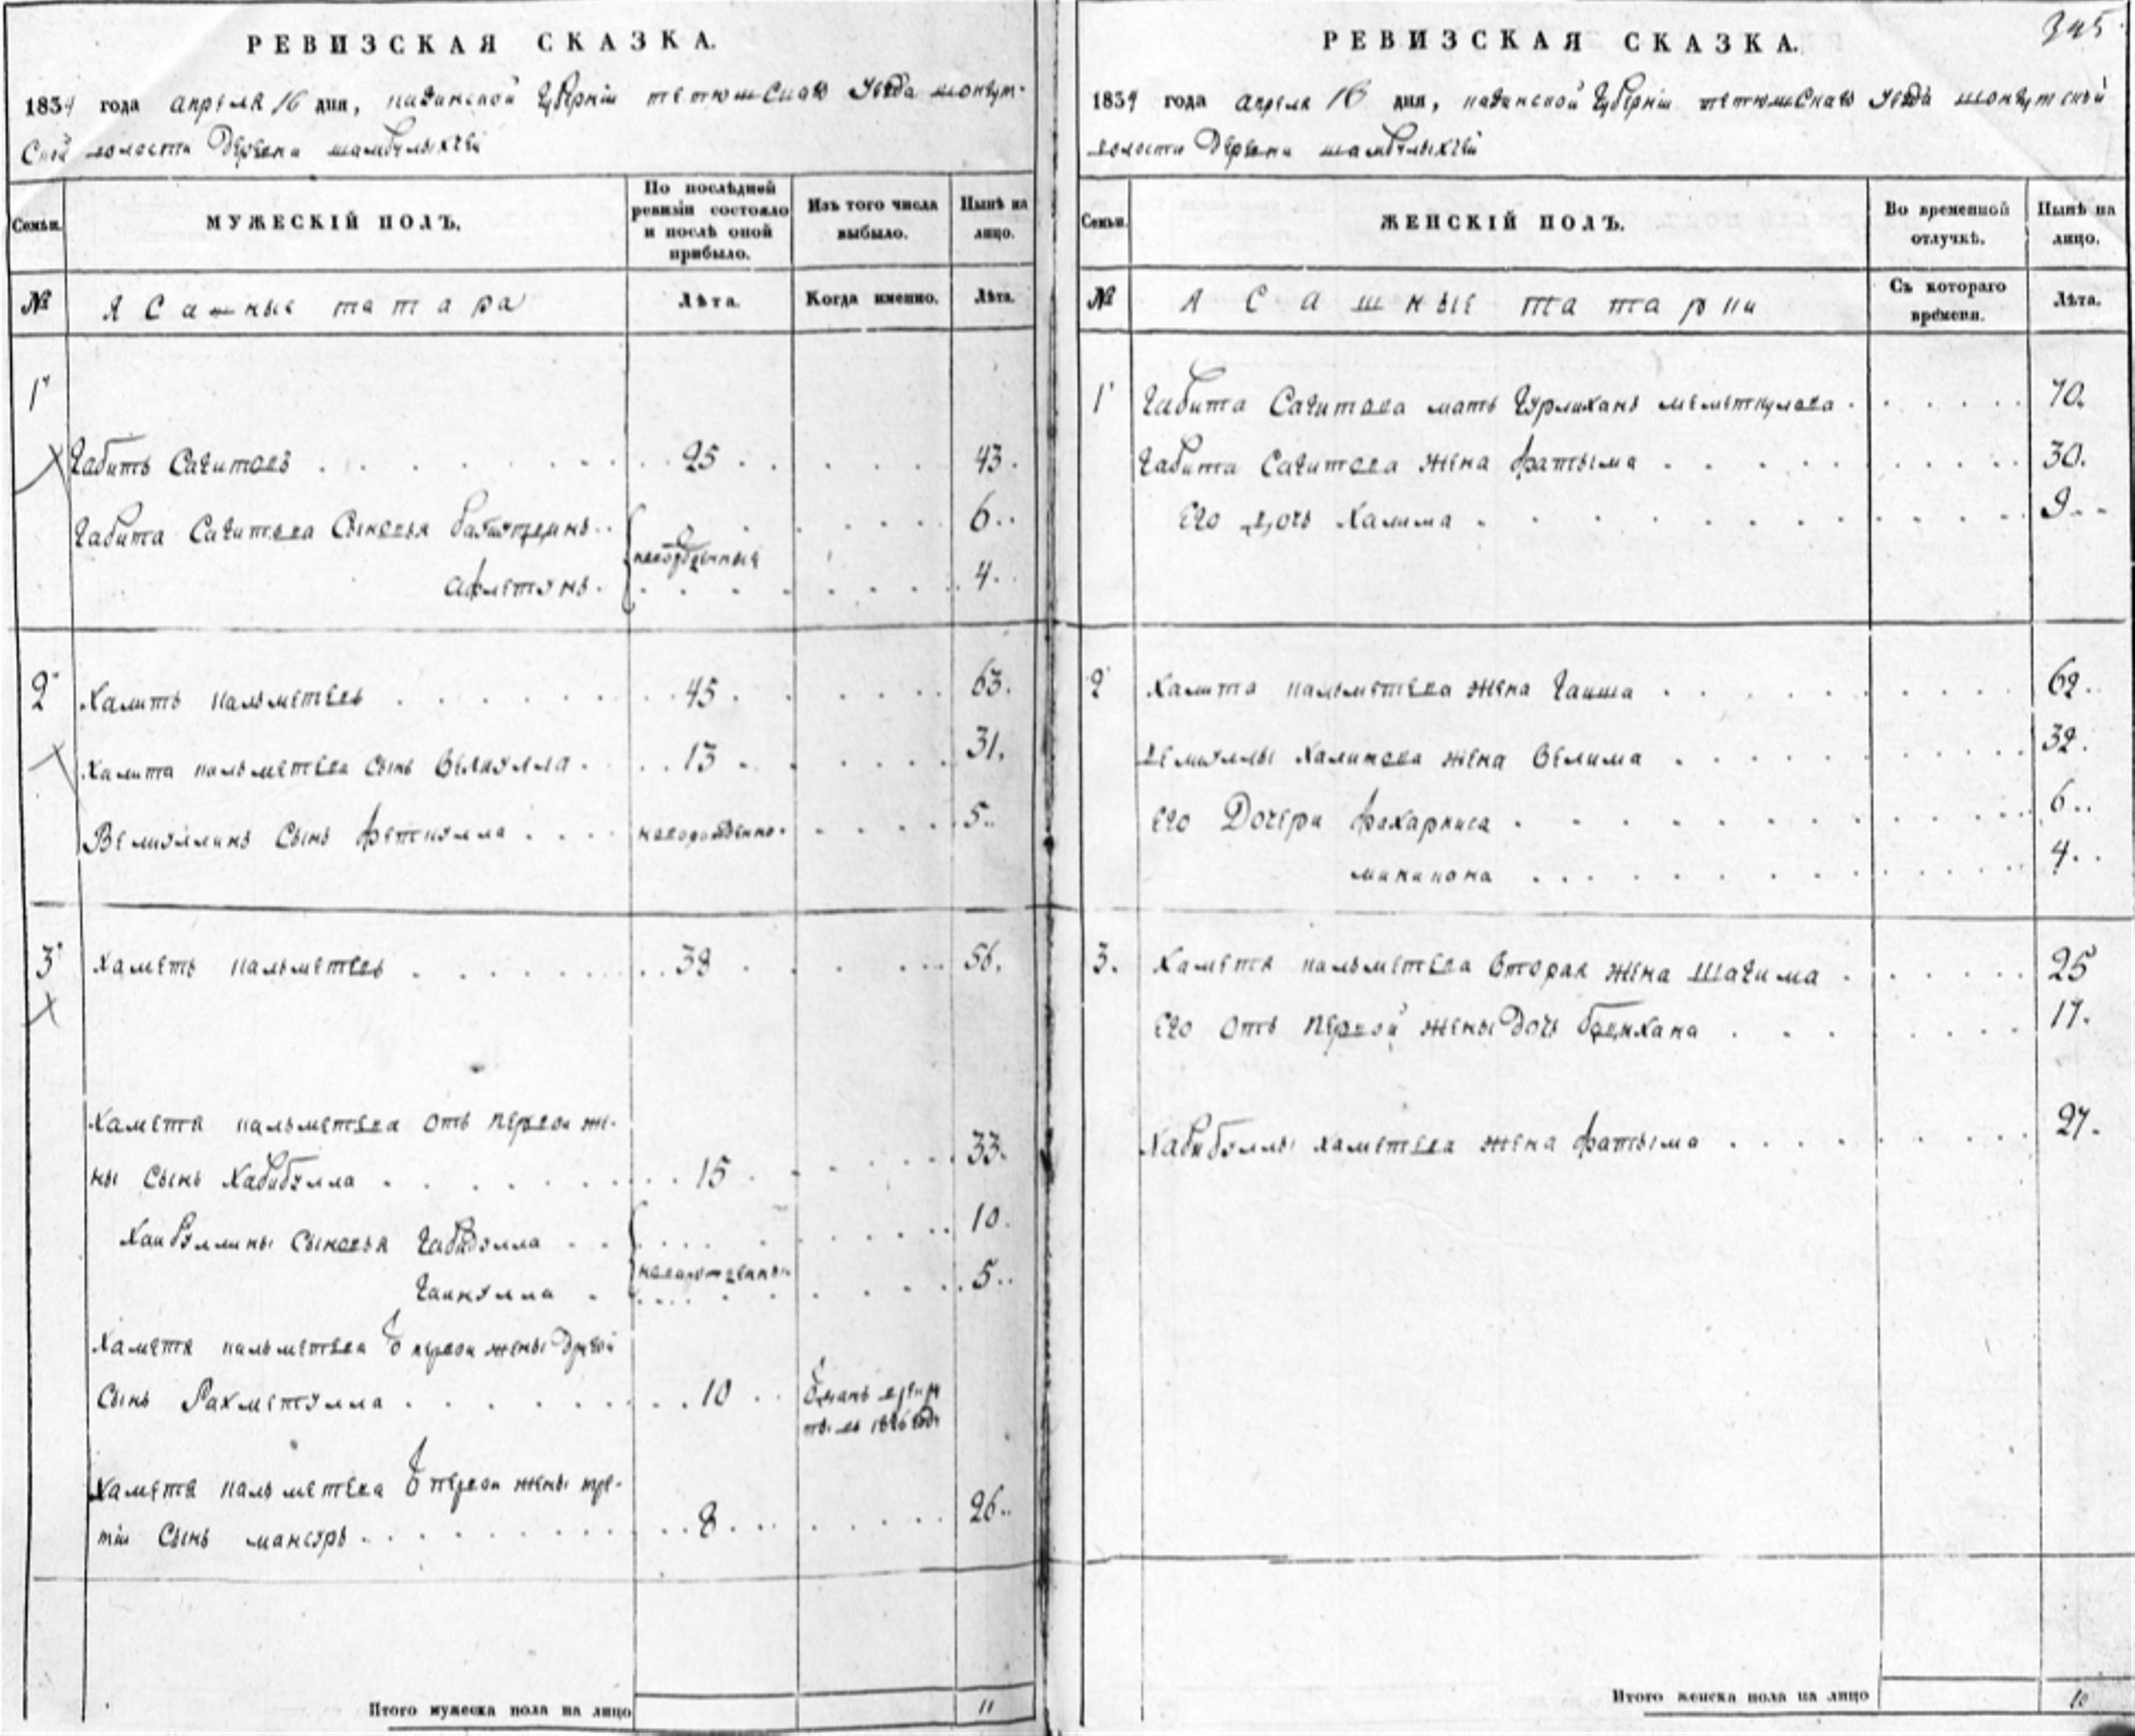 РЕВИЗСКАЯ СКАЗКА.
1834 года апреля 16 дня, казанской губернiи тетюшскаго уезда шонгут-
ской волости деревни шамбулыхчей
Семьи.
МУЖЕСКIЙ ПОЛЪ.
По послѣдней ревизiи состояло и послѣ оной прибыло.
Изъ того числа выбыло.
Нынѣ на лицо.
№
Ясашные татара
Лѣта.
Когда именно.
Лѣта.
1
Габитъ Сагитовъ 25 43.
Габита Сагитова Сыновья 6
новорожденныя
Афлетунъ 4
2
Халитъ кальметевъ 45 63.
Халита кальметева сынъ Велиулла 13 31.
Велиуллинъ Сынъ феткулла новорожденно 5
3
Хаметъ кальметевъ 38 56.
Хаметя кальметева отъ первои же-
ны Сынъ Хабибулла 15 33.
Хаибуллины Сыновья Габидулла 10.
новорожденны
Гаинулла 5
Хаметя кальметева первои жены другой
Сынъ Рахметулла 10 въ 1826 годе
Хаметя кальметева первои жены тре-
тiи Сынъ мансуръ 8 26
Итого мужеска пола на лицо 11
345
РЕВИЗСКАЯ СКАЗКА.
1834 года апреля 16 дня, казанской губернiи тетюшскаго уезда шонгутской
волости деревни шамбулыхчей
Семьи.
ЖЕНСКIЙ ПОЛЪ.
Во временной отлучкѣ.
Нынѣ на лицо.
№
Ясашные татарки
Съ котораго времени.
Лѣта.
1 Габита Сагитова мать Гурлиханъ меметкулова 70.
Габита Сагитова жена фатыма 30.
Его дочь Халима 9
2 Халита кальметева жена Гаиша 62
Велиуллы Халитова жена Велима 32
Его Дочери фахарниса 6
4
3. Хаметя кальметева вторая жена Шагима 25
Его отъ первой жены дочь 17.
Хабибуллы хаметева жена фатыма 27.
Итого женска пола на лицо 10